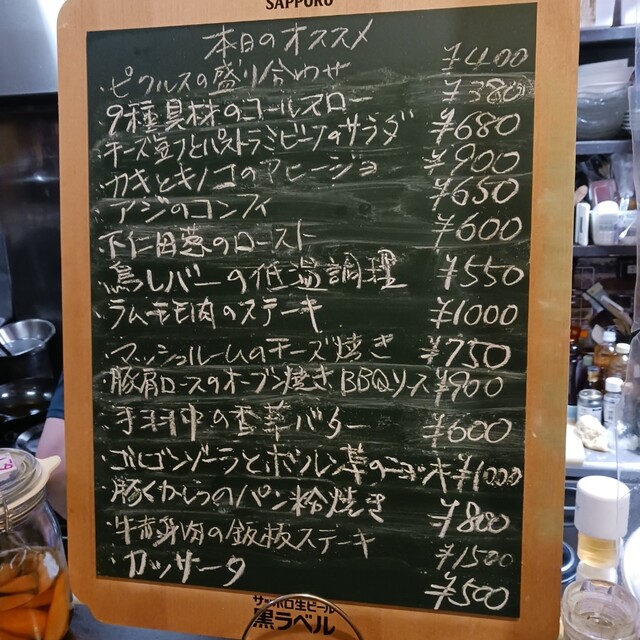 SAPPORO
本日のオススメ
・ピクルスの盛り合わせ ¥400
・9種具材のコールスロー ¥380
・チーズ豆フとパストラミビーフのサラダ ¥680
・カキとキノコのアヒージョ ¥900
・アジのコンフィ ¥650
・下仁田葱のロースト ¥600
・鳥レバーの低温調理 ¥550
・ラムモモ肉のステーキ ¥1000
・マッシュルームのチーズ焼き ¥750
・豚肩ロースのオーブン焼きBBQソース ¥900
・手羽中の香草バター ¥600
・ゴルゴンゾーラとホウレン草のニョッキ ¥1000
・豚くからのパン粉焼き ¥800
・牛赤身肉の鉄板ステーキ ¥1500
・カッサータ ¥500
サッポロ生ビール
黒ラベル